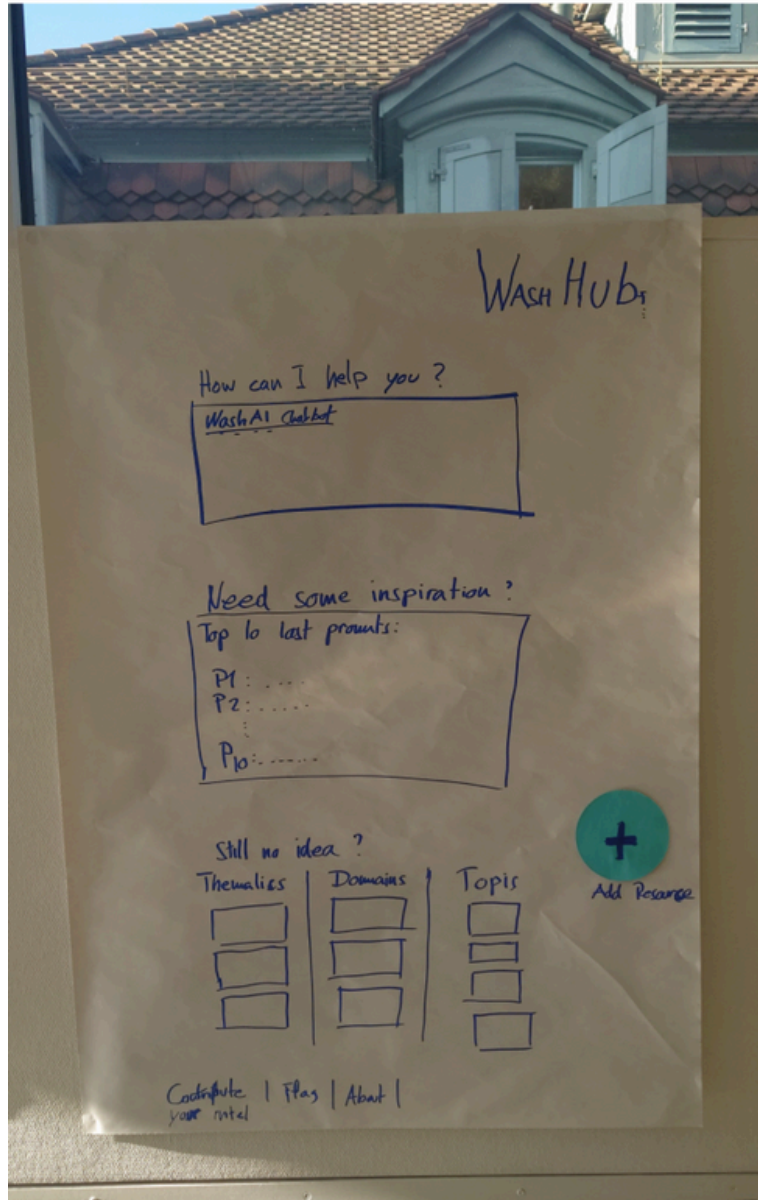 WASH Hub
How can I help you ?
WashAI Chatbot
Need some inspiration ?
Top 10 last promts:
P1 : ....
P2 : .....
P10 : ......
Still no idea ?
Thematics | Domains | Topis
+
Add Resource
Contribute | Flag | About |
your intel